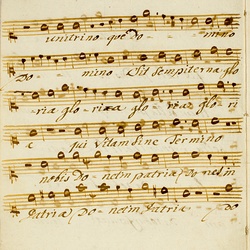 unitrino que do mino
Do mino Sit sempiterna glo
ria glo ria a glo ria glo ri
a qui vitam sine termino
nobis do net in patria, do net in
patria, do net in patria Do